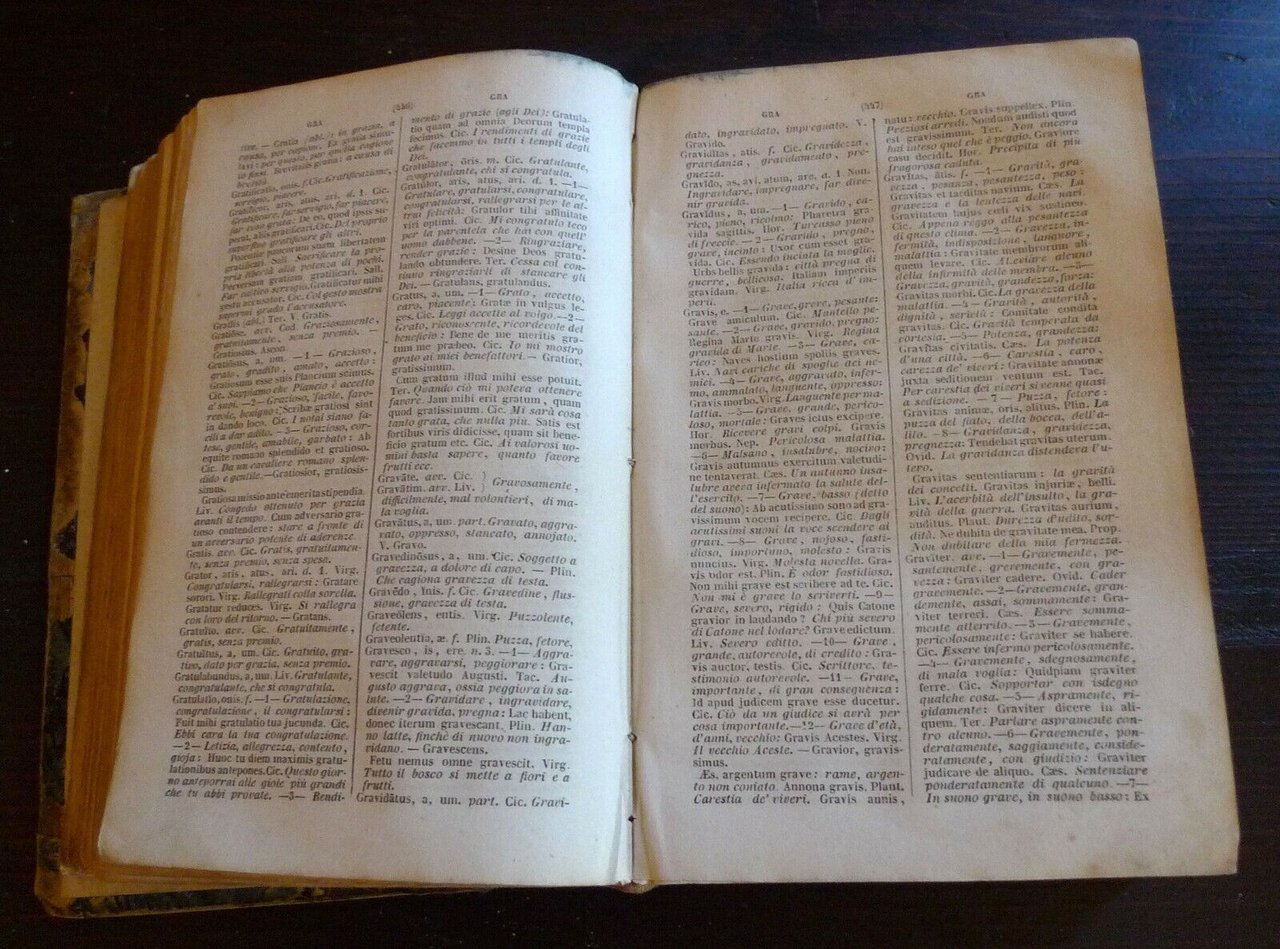 GRA
GRA
tive. — Gratia (abl.): in grazia, a
causa, per cagione. Ea gratia simu-
lavi: per questo, per simile cagione
io finsi. Brevitatis gratia: a causa di
brevità.
Gratificatio, onis. f. Cic. Gratificazione,
servigio, piacere.
Gratificor, aris, atus, ari. d. 1. Cic.
Gratificare, far servigio, far piacere,
far cosa grata: De eo, quod ipsis su-
perat, aliis gratificari. Cic. Del proprio
superfluo gratificare gli altri.
Potentiæ paucorum suam libertatem
gratificari. Sall. Sacrificare la pro-
pria libertà alla potenza di pochi.
Perversam gratiam gratificari. Sall.
Far cattivo servigio. Gratificatur mihi
gestu accusator. Cic. Col gesto mostra
sapermi grado l'accusatore.
Gratiis (abl.) Ter. V. Gratis.
Gratiōse. avv. Cod. Graziosamente,
gratuitamente, senza premio. —
Gratiosius. Ascon.
Gratiōsus, a, um. —1— Grazioso,
grato, gradito, amato, accetto:
Gratiosum esse suis Plancium scimus.
Cic. Sappiamo che Plancio è accetto
a' suoi. —2— Grazioso, facile, favo-
revole, benigno: Scribæ gratiosi sint
in dando loco. Cic. I notai siano fa-
cili a dar adito. —3— Grazioso, cor-
tese, gentile, amabile, garbato: Ab
equite romano splendido et gratioso.
Cic. Da un cavaliere romano splen-
dido e gentile. —Gratiosior, gratiosis-
simus.
Gratiosa missio ante emerita stipendia.
Liv. Congedo ottenuto per grazia
avanti il tempo. Cum adversario gra-
tioso contendere: stare a fronte di
un avversario potente di aderenze.
Gratis. avv. Cic. Gratis, gratuitamen-
te, senza premio, senza spesa.
Grator, aris, atus, ari. d. 1. Virg.
Congratularsi, rallegrarsi: Gratare
sorori. Virg. Rallegrati colla sorella.
Gratatur reduces. Virg. Si rallegra
con loro del ritorno. — Gratans.
Gratuĭto. avv. Cic. Gratuitamente,
gratis, senza premio.
Gratuĭtus, a, um. Cic. Gratuito, gra-
tivo, dato per grazia, senza premio.
Gratulabundus, a, um. Liv. Gratulante,
congratulante, che si congratula.
Gratulatio, onis. f. —1— Gratulazione,
congratulazione, il congratularsi:
Fuit mihi gratulatio tua jucunda. Cic.
Ebbi cara la tua congratulazione.
—2— Letizia, allegrezza, contento,
gioja: Hunc tu diem maximis gratu-
lationibus antepones. Cic. Questo gior-
no anteporrai alle gioie più grandi
che tu abbi provate. —3— Rendi-
mento di grazie (agli Dei): Gratula-
tio quam ad omnia Deorum templa
fecimus. Cic. I rendimenti di grazie
che facemmo in tutti i templi degli
Dei.
Gratulātor, ōris. m. Cic. Gratulante,
congratulante, chi si congratula.
Gratŭlor, aris, atus, ari. d. 1. —1—
Gratulare, gratularsi, congratulare,
congratularsi, rallegrarsi per le al-
trui felicità: Gratulor tibi affinitate
viri optimi. Cic. Mi congratulo teco
per la parentela che hai con quell'
uomo dabbene. —2— Ringraziare,
render grazie: Desine Deos gratu-
lando obtundere. Ter. Cessa coi con-
tinuo ringraziarli di stancare gli
Dei. — Gratulans, gratulandus.
Gratus, a, um. —1— Grato, accetto,
caro, piacente: Gratæ in vulgus le-
ges. Cic. Leggi accette al volgo. —2—
Grato, riconoscente, ricordevole del
beneficio: Bene de me meritis gra-
tum me præbeo. Cic. Io mi mostro
grato ai miei benefattori. — Gratior,
gratissimum.
Cum gratum illud mihi esse potuit.
Ter. Quando ciò mi poteva ottenere
favore. Jam mihi erit gratum, quam
quod gratissimum. Cic. Mi sarà cosa
tanto grata, che nulla più. Satis est
fortibus viris didicisse, quam sit bene-
ficio gratum etc. Cic. Ai valorosi uo-
mini basta sapere, quanto favore
frutti ecc.
Gravāte. avv. Cic. } Gravosamente,
Gravātim. avv. Liv. } difficilmente, mal volontieri, di ma-
la voglia.
Gravātus, a, um. part. Gravato, aggra-
vato, oppresso, stancato, annojato.
V. Gravo.
Gravedinōsus, a, um. Cic. Soggetto a
gravezza, a dolore di capo. — Plin.
Che cagiona gravezza di testa.
Gravēdo, ĭnis. f. Cic. Gravedine, flus-
sione, gravezza di testa.
Graveŏlens, entis. Virg. Puzzolente,
fetente.
Graveolentia, æ. f. Plin. Puzza, fetore,
Gravesco, is, ere. n. 3. —1— Aggra-
vare, aggravarsi, peggiorare: Gra-
vescit valetudo Augusti. Tac. Au-
gusto aggrava, ossia peggiora in sa-
lute. —2— Gravidare, ingravidare,
divenir gravida, pregna: Lac habent,
donec iterum gravescant. Plin. Han-
no latte, finchè di nuovo non ingra-
vidano. — Gravescens.
Fetu nemus omne gravescit. Virg.
Tutto il bosco si mette a fiori e a
frutti.
Gravidātus, a, um. part. Cic. Gravi-
GRA
GRA
dato, ingravidato, impregnato. V.
Gravido.
Gravidĭtas, atis. f. Cic. Gravidezza,
gravidanza, gravidamento, pre-
gnezza.
Gravĭdo, as, avi, atum, are, a. 1. Non.
Ingravidare, impregnare, far dive-
nir gravida.
Gravĭdus, a, um. —1— Gravido, ca-
rico, pieno, ricolmo: Pharetra gra-
vida sagittis. Hor. Turcasso pieno
di freccie. —2— Gravido, pregno,
grave, incinto: Uxor cum esset gra-
vida. Cic. Essendo incinta la moglie.
Urbs bellis gravida: città pregna di
guerre, bellicosa. Italiam imperiis
gravidam. Virg. Italia ricca d'im-
perii.
Gravis, e. —1— Grave, greve, pesante:
Grave amiculum. Cic. Mantello pe-
sante. —2— Grave, gravido, pregno:
Regina Marte gravis. Virg. Regina
gravida di Marte. —3— Grave, ca-
rico: Naves hostium spoliis graves.
Liv. Navi cariche di spoglie dei ne-
mici. —4— Grave, aggravato, infer-
mo, ammalato, languente, oppresso:
Gravis morbo. Virg. Languente per ma-
lattia. —5— Grave, grande, perico-
loso, mortale: Graves ictus excipere.
Hor. Ricevere gravi colpi. Gravis
morbus. Nep. Pericolosa malattia.
—6— Malsano, insalubre, nocivo:
Gravis autumnus exercitum valetudi-
ne tentaverat. Cæs. Un autunno insa-
lubre aveva infermato la salute del-
l'esercito. —7— Grave, basso (detto
del suono): Ab acutissimo sono ad gra-
vissimum vocem recipere. Cic. Dagli
acutissimi suoni la voce scendere ai
gravi. —8— Grave, nojoso, fasti-
dioso, importuno, molesto: Gravis
nuncius. Virg. Molesta novella. Gra-
vis odor est. Plin. È odor fastidioso.
Non mihi grave est scribere ad te. Cic.
Non mi è grave lo scriverti. —9—
Grave, severo, rigido: Quis Catone
gravior in laudando? Chi più severo
di Catone nel lodare? Grave edictum.
Liv. Severo editto. —10— Grave,
grande, autorevole, di credito: Gra-
vis auctor, testis. Cic. Scrittore, te-
stimonio autorevole. —11— Grave,
importante, di gran conseguenza:
Id apud judicem grave esse ducetur.
Cic. Ciò da un giudice si avrà per
cosa importante. —12— Grave d'età,
d'anni, vecchio: Gravis Acestes. Virg.
Il vecchio Aceste. — Gravior, gravis-
simus.
Æs. argentum grave: rame, argen-
to non coniato. Annona gravis. Plaut.
Carestia de' viveri. Gravis annis,
natu: vecchio. Gravis suppellex. Plin.
Preziosi arredi. Nondum audisti quod
est gravissimum. Ter. Non ancora
hai inteso quel che è peggio. Graviore
casu decidit. Hor. Precipita di più
fragorosa caduta.
Gravĭtas, ātis. f. —1— Gravità, gra-
vezza, pesanza, pesantezza, peso:
Gravitas et tarditas navium. Cæs. La
gravezza e la lentezza delle navi
Gravitatem hujus cœli vix sustineo.
Cic. Appena reggo alla pesantezza
di questo clima. —2— Gravezza, in-
fermità, indisposizione, languore,
malattia: Gravitate membrorum ali-
quem levare. Cic. Alleviare alcuno
della infermità delle membra. —3—
Gravezza, gravità, grandezza, forza:
Gravitas morbi. Cic. La gravezza della
malattia. —4— Gravità, autorità,
dignità, serietà: Comitate condita
gravitas. Cic. Gravità temperata da
cortesia. —5— Potenza, grandezza:
Gravitas civitatis. Cæs. La potenza
d'una città. —6— Carestia, caro,
carezza de' viveri: Gravitate annonæ
juxta seditionem ventum est. Tac.
Per carestia dei viveri si venne quasi
a sedizione. —7— Puzza, fetore:
Gravitas animæ, oris, alitus. Plin. La
puzza del fiato, della bocca, dell'a-
lito. —8— Gravidanza, gravidezza,
pregnezza: Tendebat gravitas uterum.
Ovid. La gravidanza distendeva l'u-
tero.
Gravitas sententiarum: la gravità
dei concetti. Gravitas injuriæ, belli.
Liv. L'acerbità dell'insulto, la gra-
vità della guerra. Gravitas aurium,
auditus. Plaut. Durezza d'udito, sor-
dità. Ne dubita de gravitate mea. Prop.
Non dubitare della mia fermezza.
Gravĭter. avv. —1— Gravemente, pe-
santemente, grevemente, con gra-
vezza: Graviter cadere. Ovid. Cader
gravemente. —2— Gravemente, gran-
demente, assai, sommamente: Gra-
viter terreri. Cæs. Essere somma-
mente atterrito. —3— Gravemente,
pericolosamente: Graviter se habere.
Cic. Essere infermo pericolosamente.
—4— Gravemente, sdegnosamente,
di mala voglia: Quidpiam graviter
ferre. Cic. Sopportar con isdegno
qualche cosa. —5— Aspramente, ri-
gidamente: Graviter dicere in ali-
quem. Ter. Parlare aspramente con-
tro alcuno. —6— Gravemente, pon-
deratamente, saggiamente, conside-
ratamente, con giudizio: Graviter
judicare de aliquo. Cæs. Sentenziare
ponderatamente di qualcuno. —7—
In suono grave, in suono basso: Ex